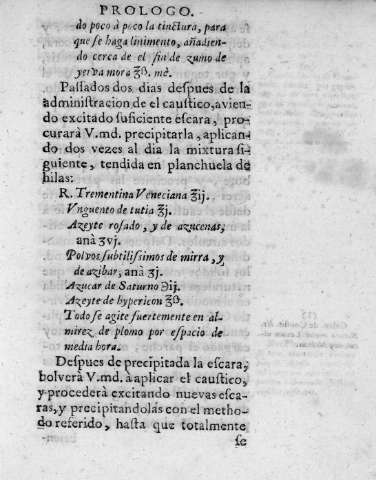 PROLOGO.
do poco à poco la tinctura, para
que ſe haga linimento, añadien-
do cerca de el fin de zumo de
yerva mora ℥ß. mè.
Paſſados dos dias deſpues de la
adminiſtracion de el cauſtico, avien-
do excitado ſuficiente eſcara, pro-
curarà V.md. precipitarla, aplican-
do dos vezes al dia la mixtura ſi-
guiente, tendida en planchuela de
hilas:
R. Trementina Veneciana ℥ij.
Vnguento de tutia ℥j.
Azeyte roſado, y de azucenas,
anà ʒvj.
Polvos ſubtiliſsimos de mirra, y
de azibar, anà ʒj.
Azucar de Saturno ℈ij.
Azeyte de hypericon ℥ß.
Todo ſe agite fuertemente en al-
mirez de plomo por eſpacio de
media hora.
Deſpues de precipitada la eſcara,
bolverà V.md. à aplicar el cauſtico,
y procederà excitando nuevas eſca-
ras, y precipitandolas con el metho-
do referido, haſta que totalmente
ſe